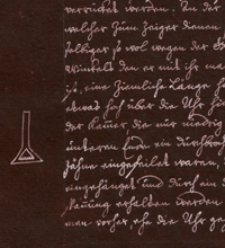 verrücket werden. In der
welcher zum Zeiger dienen
selbiger so wol wegen der
Winkels den er mit ihr ma
ist, eine ziemliche Länge
etwas hoch über die Uhr
der Kamer die nur niedrig
unteren Ende ein durchbroch
Zähne eingefeilet waren,
eingehänget und durch ein
erhalten werden
men vorher, ehe die Uhr ge